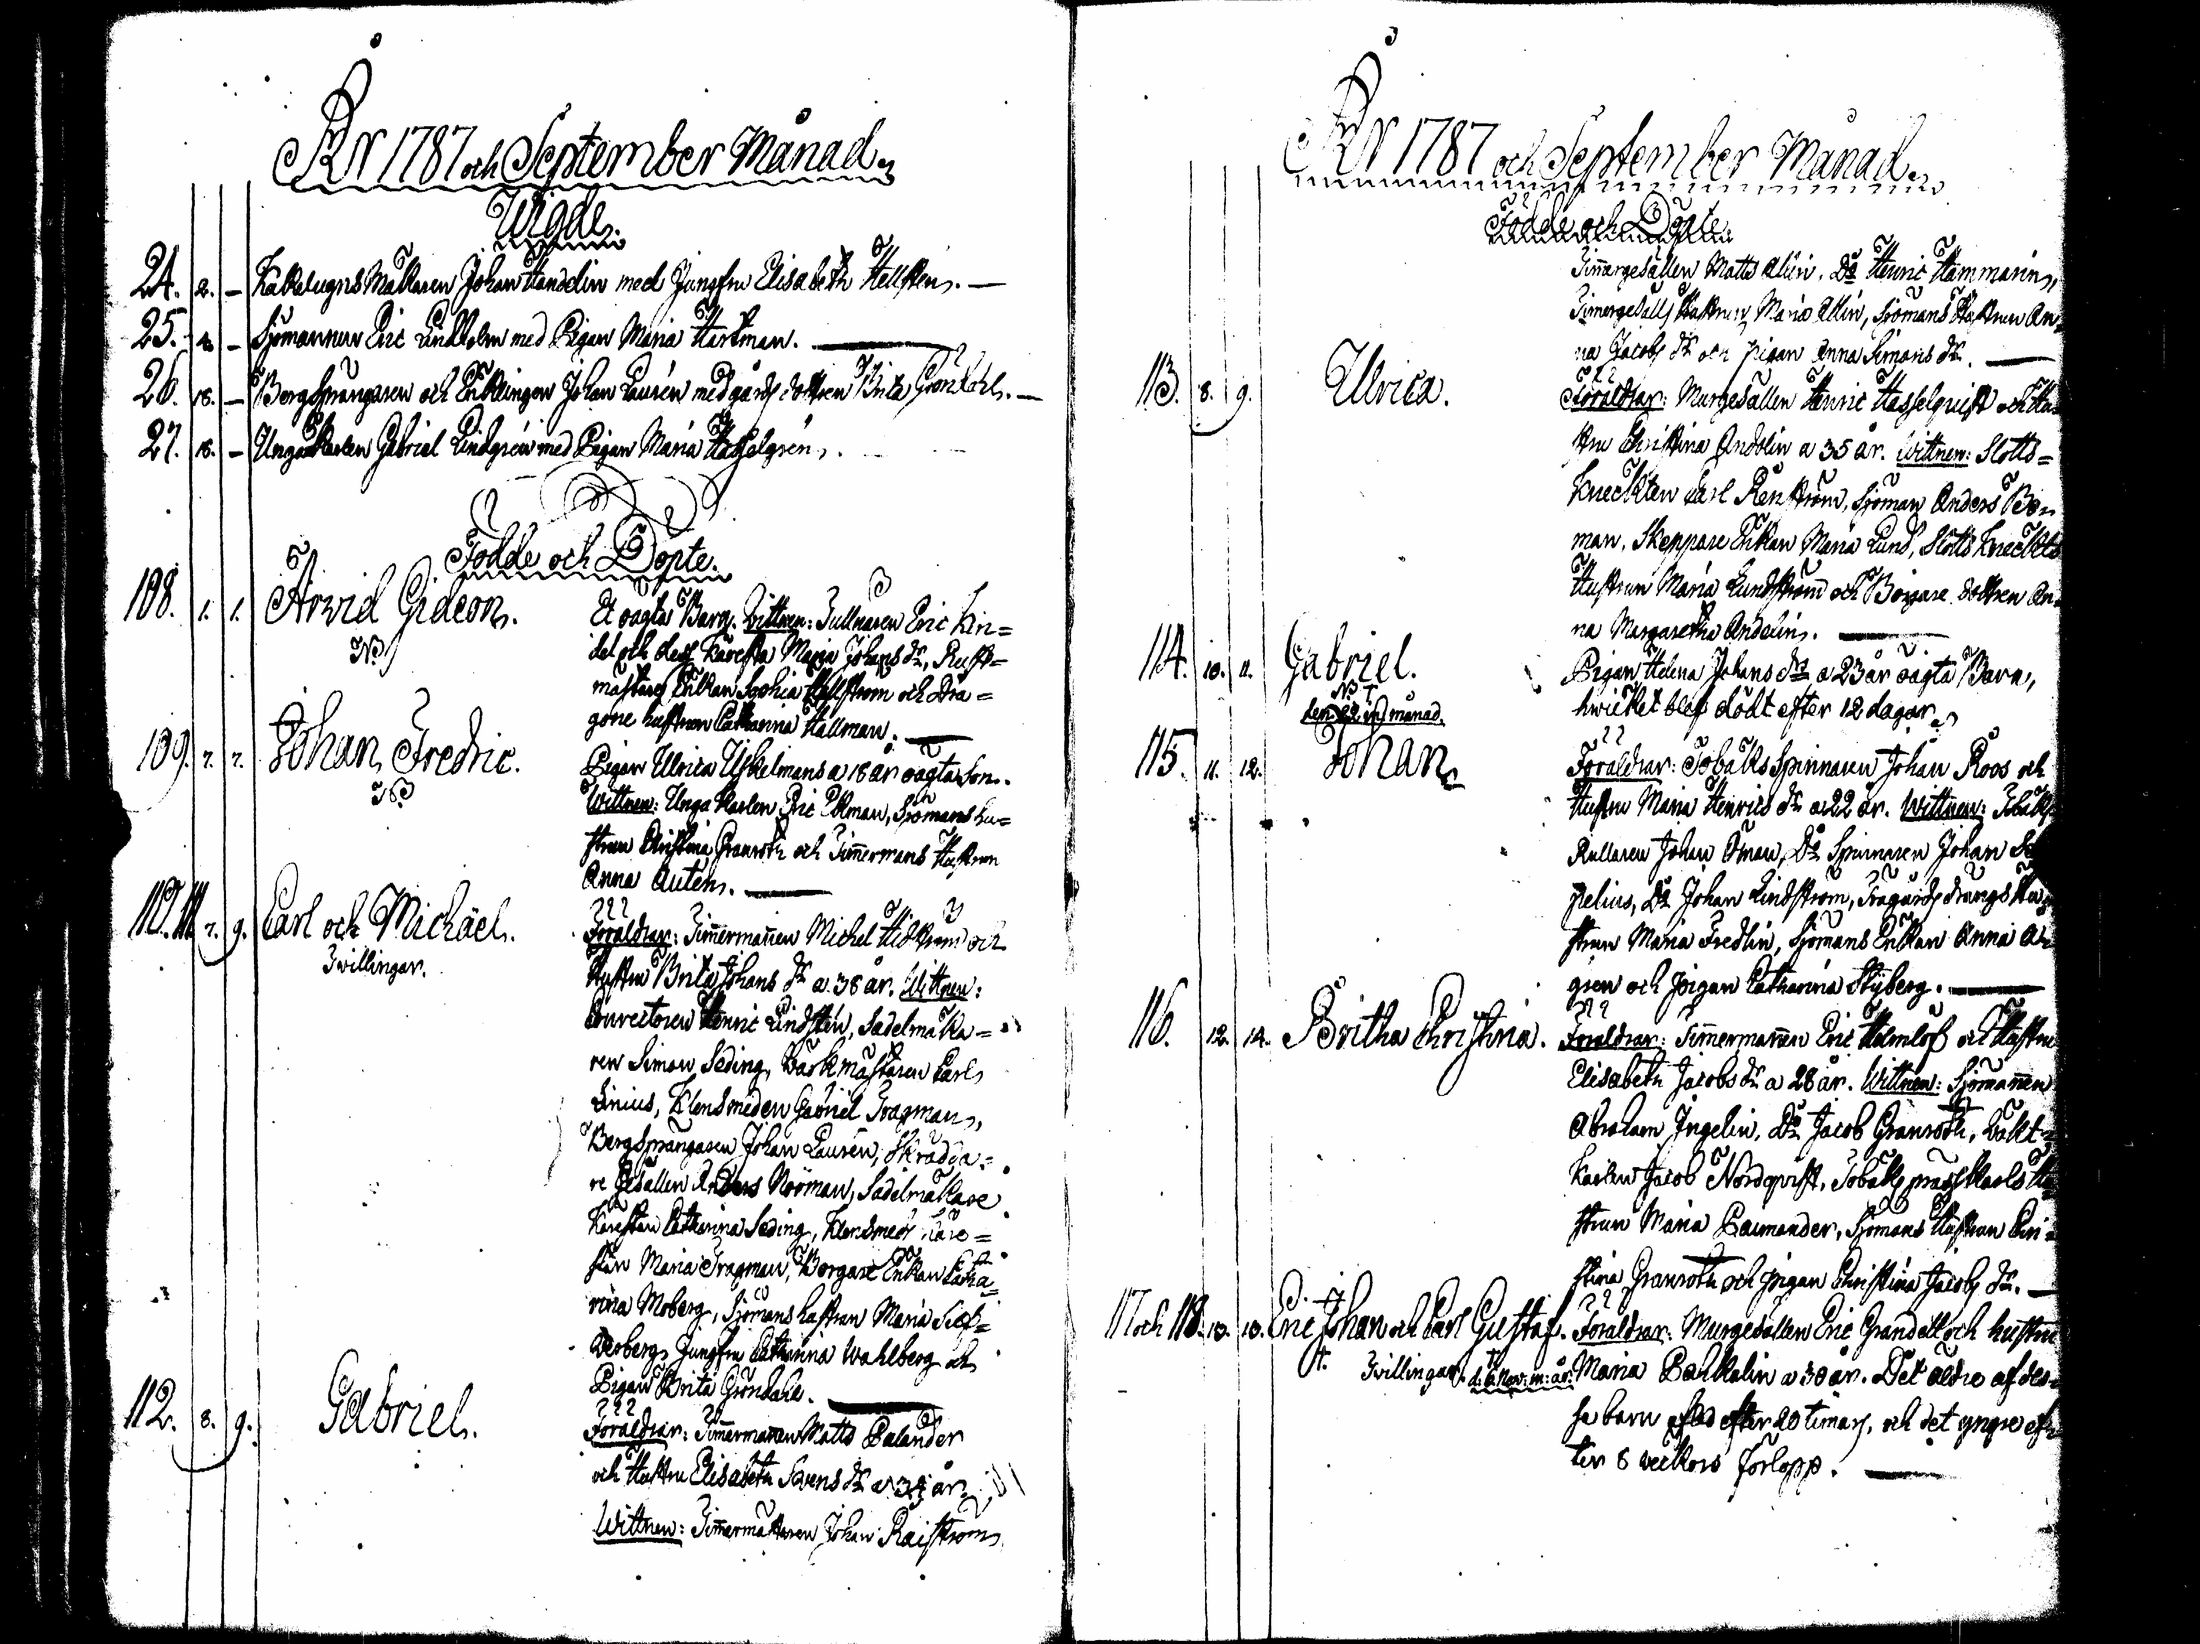 År 1787 och September Månad.
Wigde.
24. 2. – Kakelugns Makaren Johan Handelin med Jungfru Elisabeth Hellsten. —
25. – Sjömannen Eric Lindholm med Pigan Maria Hartman. —
26. 18. – Bergsprängaren och Enklingen Johan Laurén med gårds dottren Brita Gröndahl. —
27. 18. – Unga Karlen Gabriel Lindgrén med Pigan Maria Hasselgrén.
Födde och Döpte.
108. 1. 1. Arvid Gideon.
Et oägta Barn. Wittnen: Tullnaren Eric Lin=
del och dess Käresta Maria Johans dr, Rust=
mästars Enkan Sophia Hellström och Dra=
gone hustrun Catharina Hallman. —
109. 7. 7. Johan Fredric.
Pigan Ulrica Uskelmans a 18 år oägta Son.
Wittnen: Unga Karlen Eric Ekman, Sjömans hu=
strun Christina Granroth och Timmermans Hustrun
Anna Autén. —
110. 111. 7. 9. Carl och Michäel.
Tvillingar.
Föräldrar: Timmermannen Michel Hidström och
Hustru Brita Johans dr a 38 år. Wittnen:
Conrectoren Henric Lindstén, Sadelmaka=
ren Simon Seding, Barkmästaren Carl
Linius, Klensmeden Gabriel Tragman,
Bergsprängaren Johan Laurén, Skrädda=
re Gesällen Anders Norman, Sadelmakare
Kärestan Catharina Seding, Klensmeds Käre=
stan Maria Tragman, Borgare Enkan Catha=
rina Moberg, Sjömans hustrun Maria
Jungfru Catharina Wahlberg och
Pigan Brita Gröndahl. —
112. 8. 9. Gabriel.
Föräldrar: Timmermannen Matts Palander
och Hustru Elisabeth Svens dr a 34 år.
Wittnen: Timmermannen Johan Raiström,
År 1787 och September Månad.
Födde och Döpte.
Timmergesällen Matts Allin, Do Henric Hammarin,
Timmergesälls Hustrun Maria Allin, Sjömans Hustrun An=
na Jacobs dr och pigan Anna Simons dr. —
113. 8. 9. Ulrica.
Föräldrar: Murgesällen Henric Hasselquist och Hu=
stru Christina Andelin a 35 år. Wittnen: Slotts=
Knechten Carl Renström, Sjöman Anders Bo=
man, Skeppare Enkan Maria Lund, Slotts Knechts
Hustrun Maria Lundström och Borgare dottren An=
na Margaretha Andelin. —
114. 10. 11. Gabriel.
den 22 in månad.
Pigan Helena Johans dr a 23 år oägta Barn,
hwilket blef dödt efter 12 dagar.
115. 11. 12. Johan.
Föräldrar: Tobaks Spinnaren Johan Roos och
Hustru Maria Henrics dr a 22 år. Wittnen: Tobaks
Rullaren Johan Öman, Do Spinnaren Johan
pelius, Do Johan Lindström, Trägårds drängs Hu=
strun Maria Fredlin, Sjömans Enkan Anna
gren och pigan Catharina Nyberg. —
116. 12. 14. Britha Christina.
Föräldrar: Timmermannen Eric Holmlöf och Hustru
Elisabeth Jacobs dr a 28 år. Wittnen: Sjömannen
Abraham Ingelin, Do Jacob Granroth, Wakt=
Karlen Jacob Nordqvist, Tobaks prässkarls Hu=
strun Maria Palmander, Sjömans Hustrun Chri=
stina Granroth och pigan Christina Jacobs dr. —
117 och 118. 13. 13. Eric Johan och Carl Gustaf.
Tvillingar.
Föräldrar: Murgesällen Eric Grandell och hustru
Maria Backalin a 30 år. Det äldre af des=
sa barn afled efter 20 timars, och det yngre ef=
ter 8 veckors förlopp. —